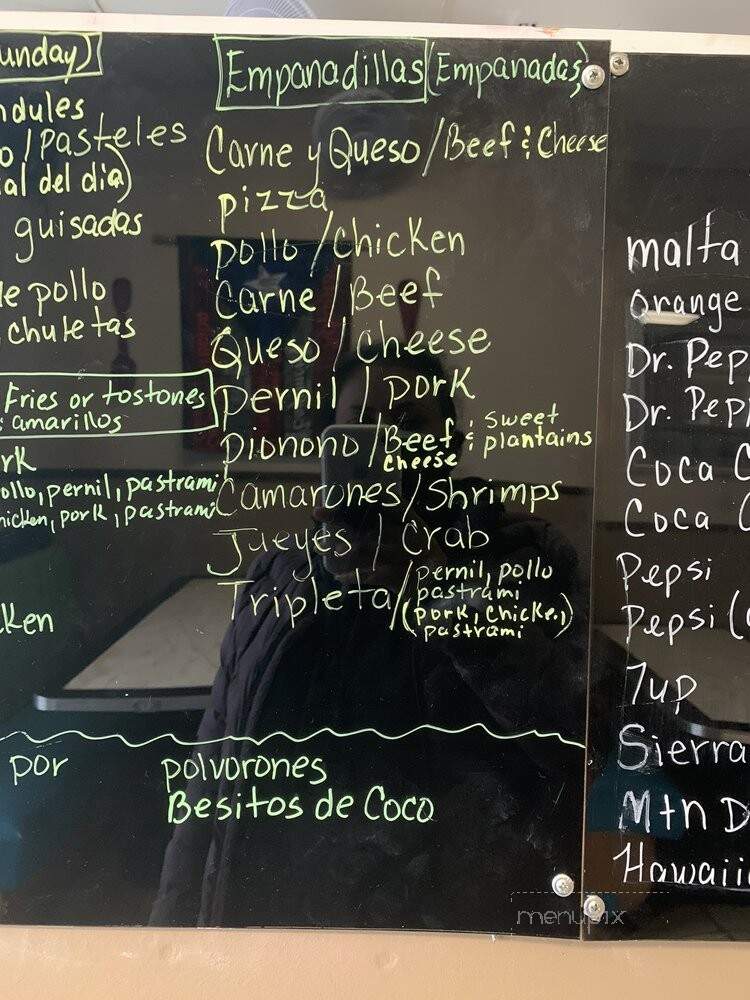 unday)
ndules
o/Pasteles
al del dia)
guisadas
de pollo
chuletas
Fries or tostones
amarillos
rk
ollo, pernil, pastrami
hicken, pork, pastrami
cken
Empanadillas (Empanadas)
Carne y Queso/Beef & Cheese
pizza
pollo/Chicken
Carne/Beef
Queso/cheese
pernil/pork
pionono/Beef & sweet
cheese plantains
Camarones/Shrimps
Jueyes/Crab
Tripleta/pernil, pollo
pastrami
(pork, chicken,)
pastrami
por
polvorones
Besitos de Coco
malta
orange
Dr. Pep
Dr. Pep
Coca C
Coca C
Pepsi
Pepsi (
7up
Sierra
Mtn D
Hawaii
menupix